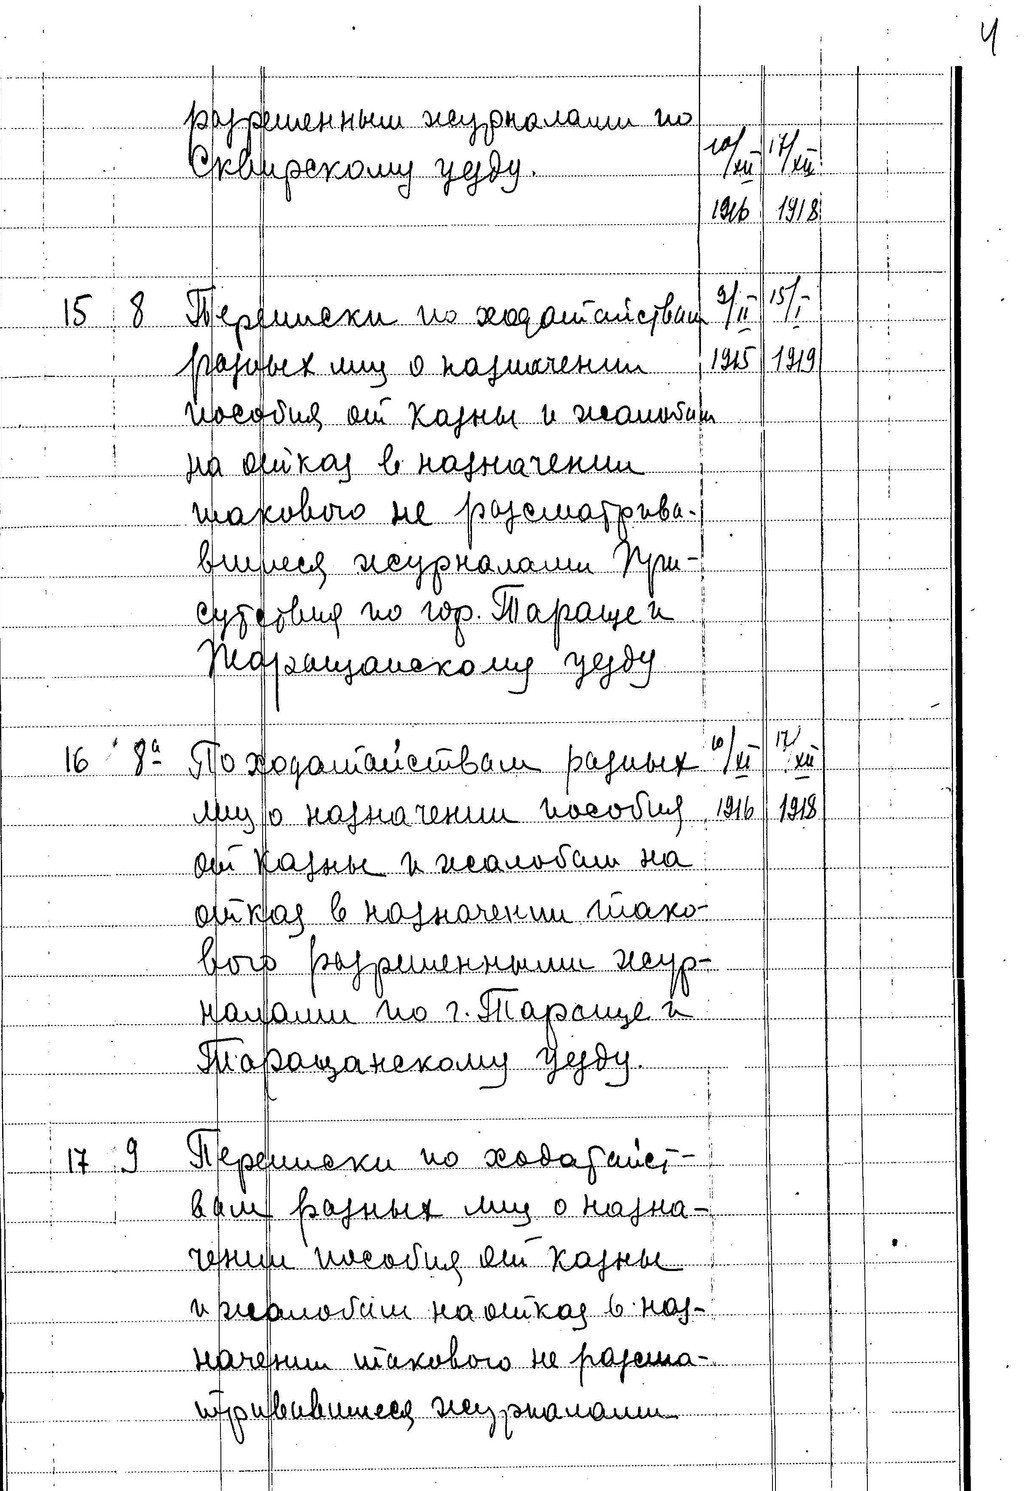 4
разрешенным журналами по
Сквирскому уезду. 10/XII 17/XII
1916 1918
15 8 Переписки по ходатайствам 9/II 15/I
разных лиц о назначении 1915 1919
пособия от казны и жалобам
на отказ в назначении
такового не разсматрива-
вшиеся журналами При-
сутствия по гор. Тараще и
Таращанскому уезду
16 8а По ходатайствам разных 10/XI 17/XII
лиц о назначении пособия 1916 1918
от казны и жалобам на
отказ в назначении тако-
вого разрешенными жур-
налами по г. Тараще и
Таращанскому уезду.
17 9 Переписки по ходатайст-
вам разных лиц о назна-
чении пособия от казны
и жалобам на отказ в наз-
начении такового не разсма-
тривавшиеся журналами